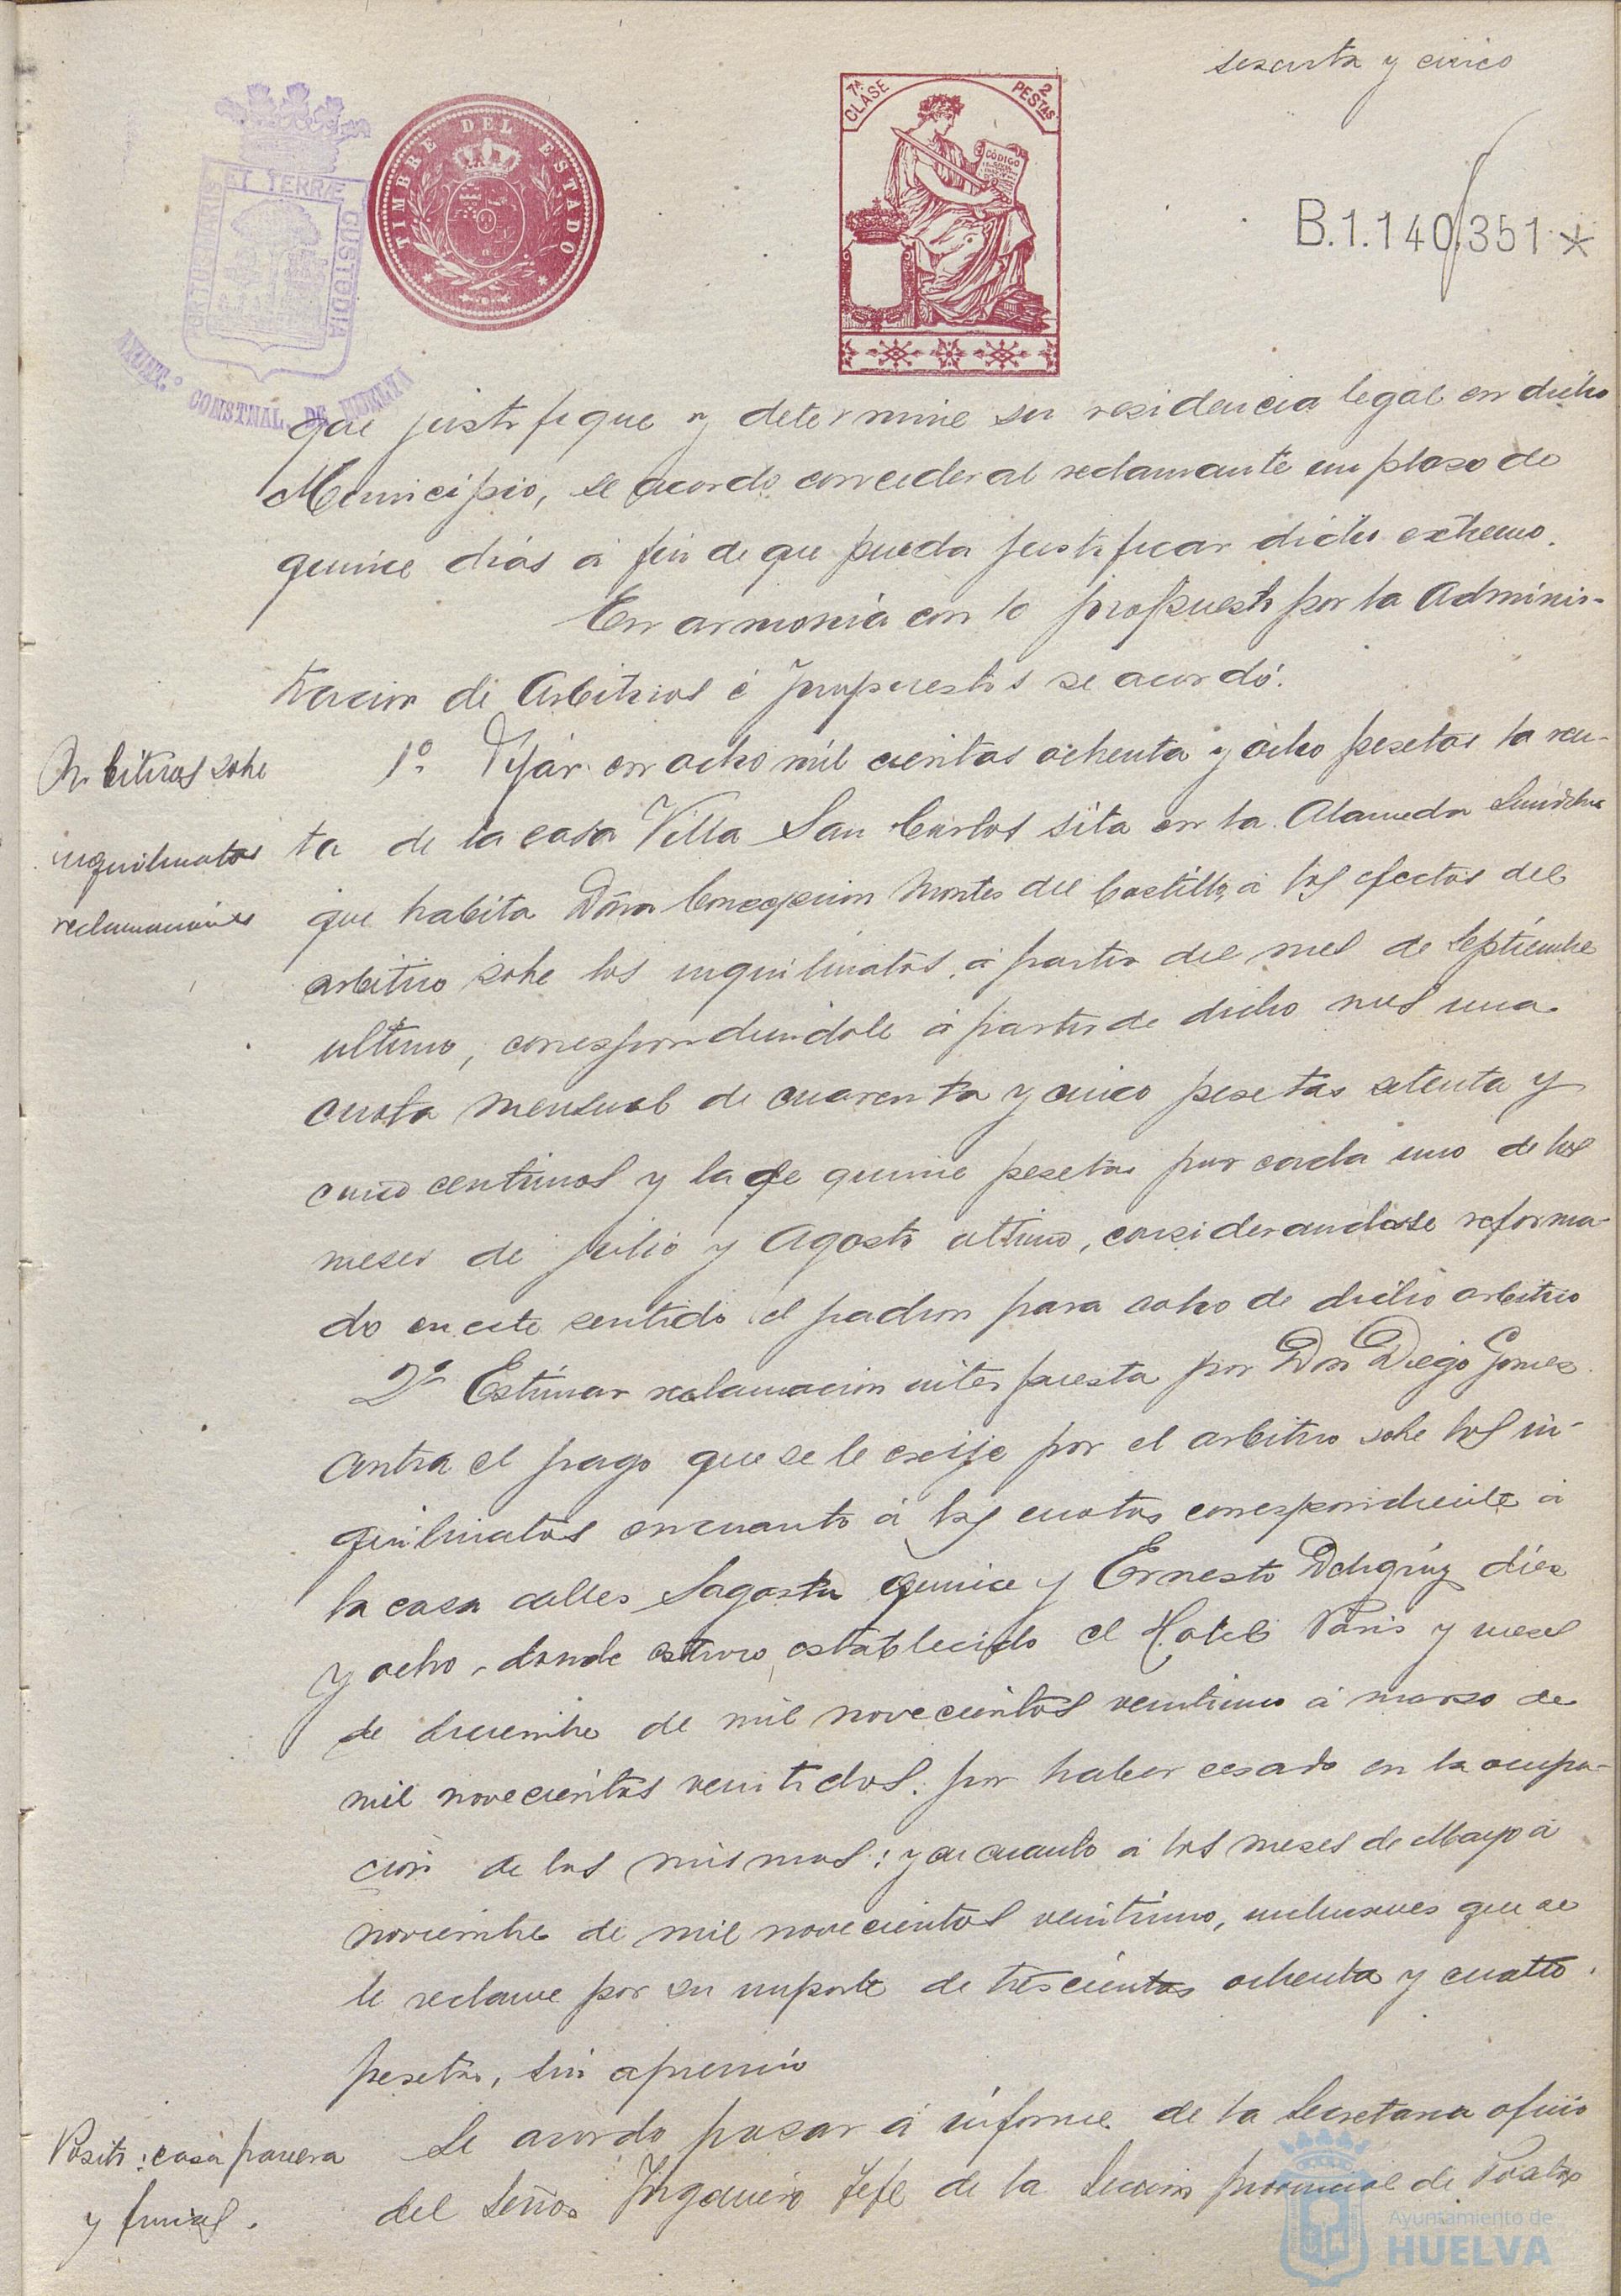 sesenta y cinco
7ª CLASE
2 PESTAS
CÓDIGO
TIMBRE DEL ESTADO
PORTUS MARIS ET TERRÆ CUSTODIA
AYUNT.º CONSTNAL. DE HUELVA
B.1.140,351 *
que justifique y determine su residencia legal en dicho
Municipio, se acordo conceder al reclamante un plaso de
quince dias á fin de que pueda justificar dicho extremo.
En armonia con lo propuesto por la Adminis-
tracion de Arbitrios é Impuestos se acordó.
Arbitrios sobre
inquilinatos
reclamaciones
1º. Fijar en ocho mil cientas ochenta y ocho pesetas la ren-
ta de la casa Villa San Carlos sita en la Alameda Sundheim
que habita Doña Concepcion Montes del Castillo, á los efectos del
arbitrio sobre los inquilinatos, á partir del mes de Septiembre
ultimo, correspondiendole á partir de dicho mes una
cuota mensual de cuarenta y cinco pesetas setenta y
cinco centimos y la de quince pesetas por cada uno de los
meses de julio y Agosto ultimo, considerandose reforma-
do en este sentido el padron para cobro de dicho arbitrio
2º Estimar reclamacion interpuesta por Don Diego Gomez
contra el pago que se le exije por el arbitrio sobre los in-
quilinatos en cuanto á las cuotas correspondiente á
la casa calles Sagasta quince y Ernesto Deligny diez
y ocho, donde estuvo establecido el Hotel Paris y meses
de diciembre de mil novecientos veintiuno á marzo de
mil novecientos veintidos. por haber cesado en la ocupa-
cion de las mismas: y en cuanto á los meses de Mayo á
noviembre de mil novecientos veintiuno, inclusives que se
le reclame por su importe de trescientas ochenta y cuatro
pesetas, sin apremio
Posito: casa panera
y fincas.
Se acordo pasar á informe de la Secretaria oficio
del Señor Ingeniero Jefe de la Seccion provincial de Positos
Ayuntamiento de
HUELVA